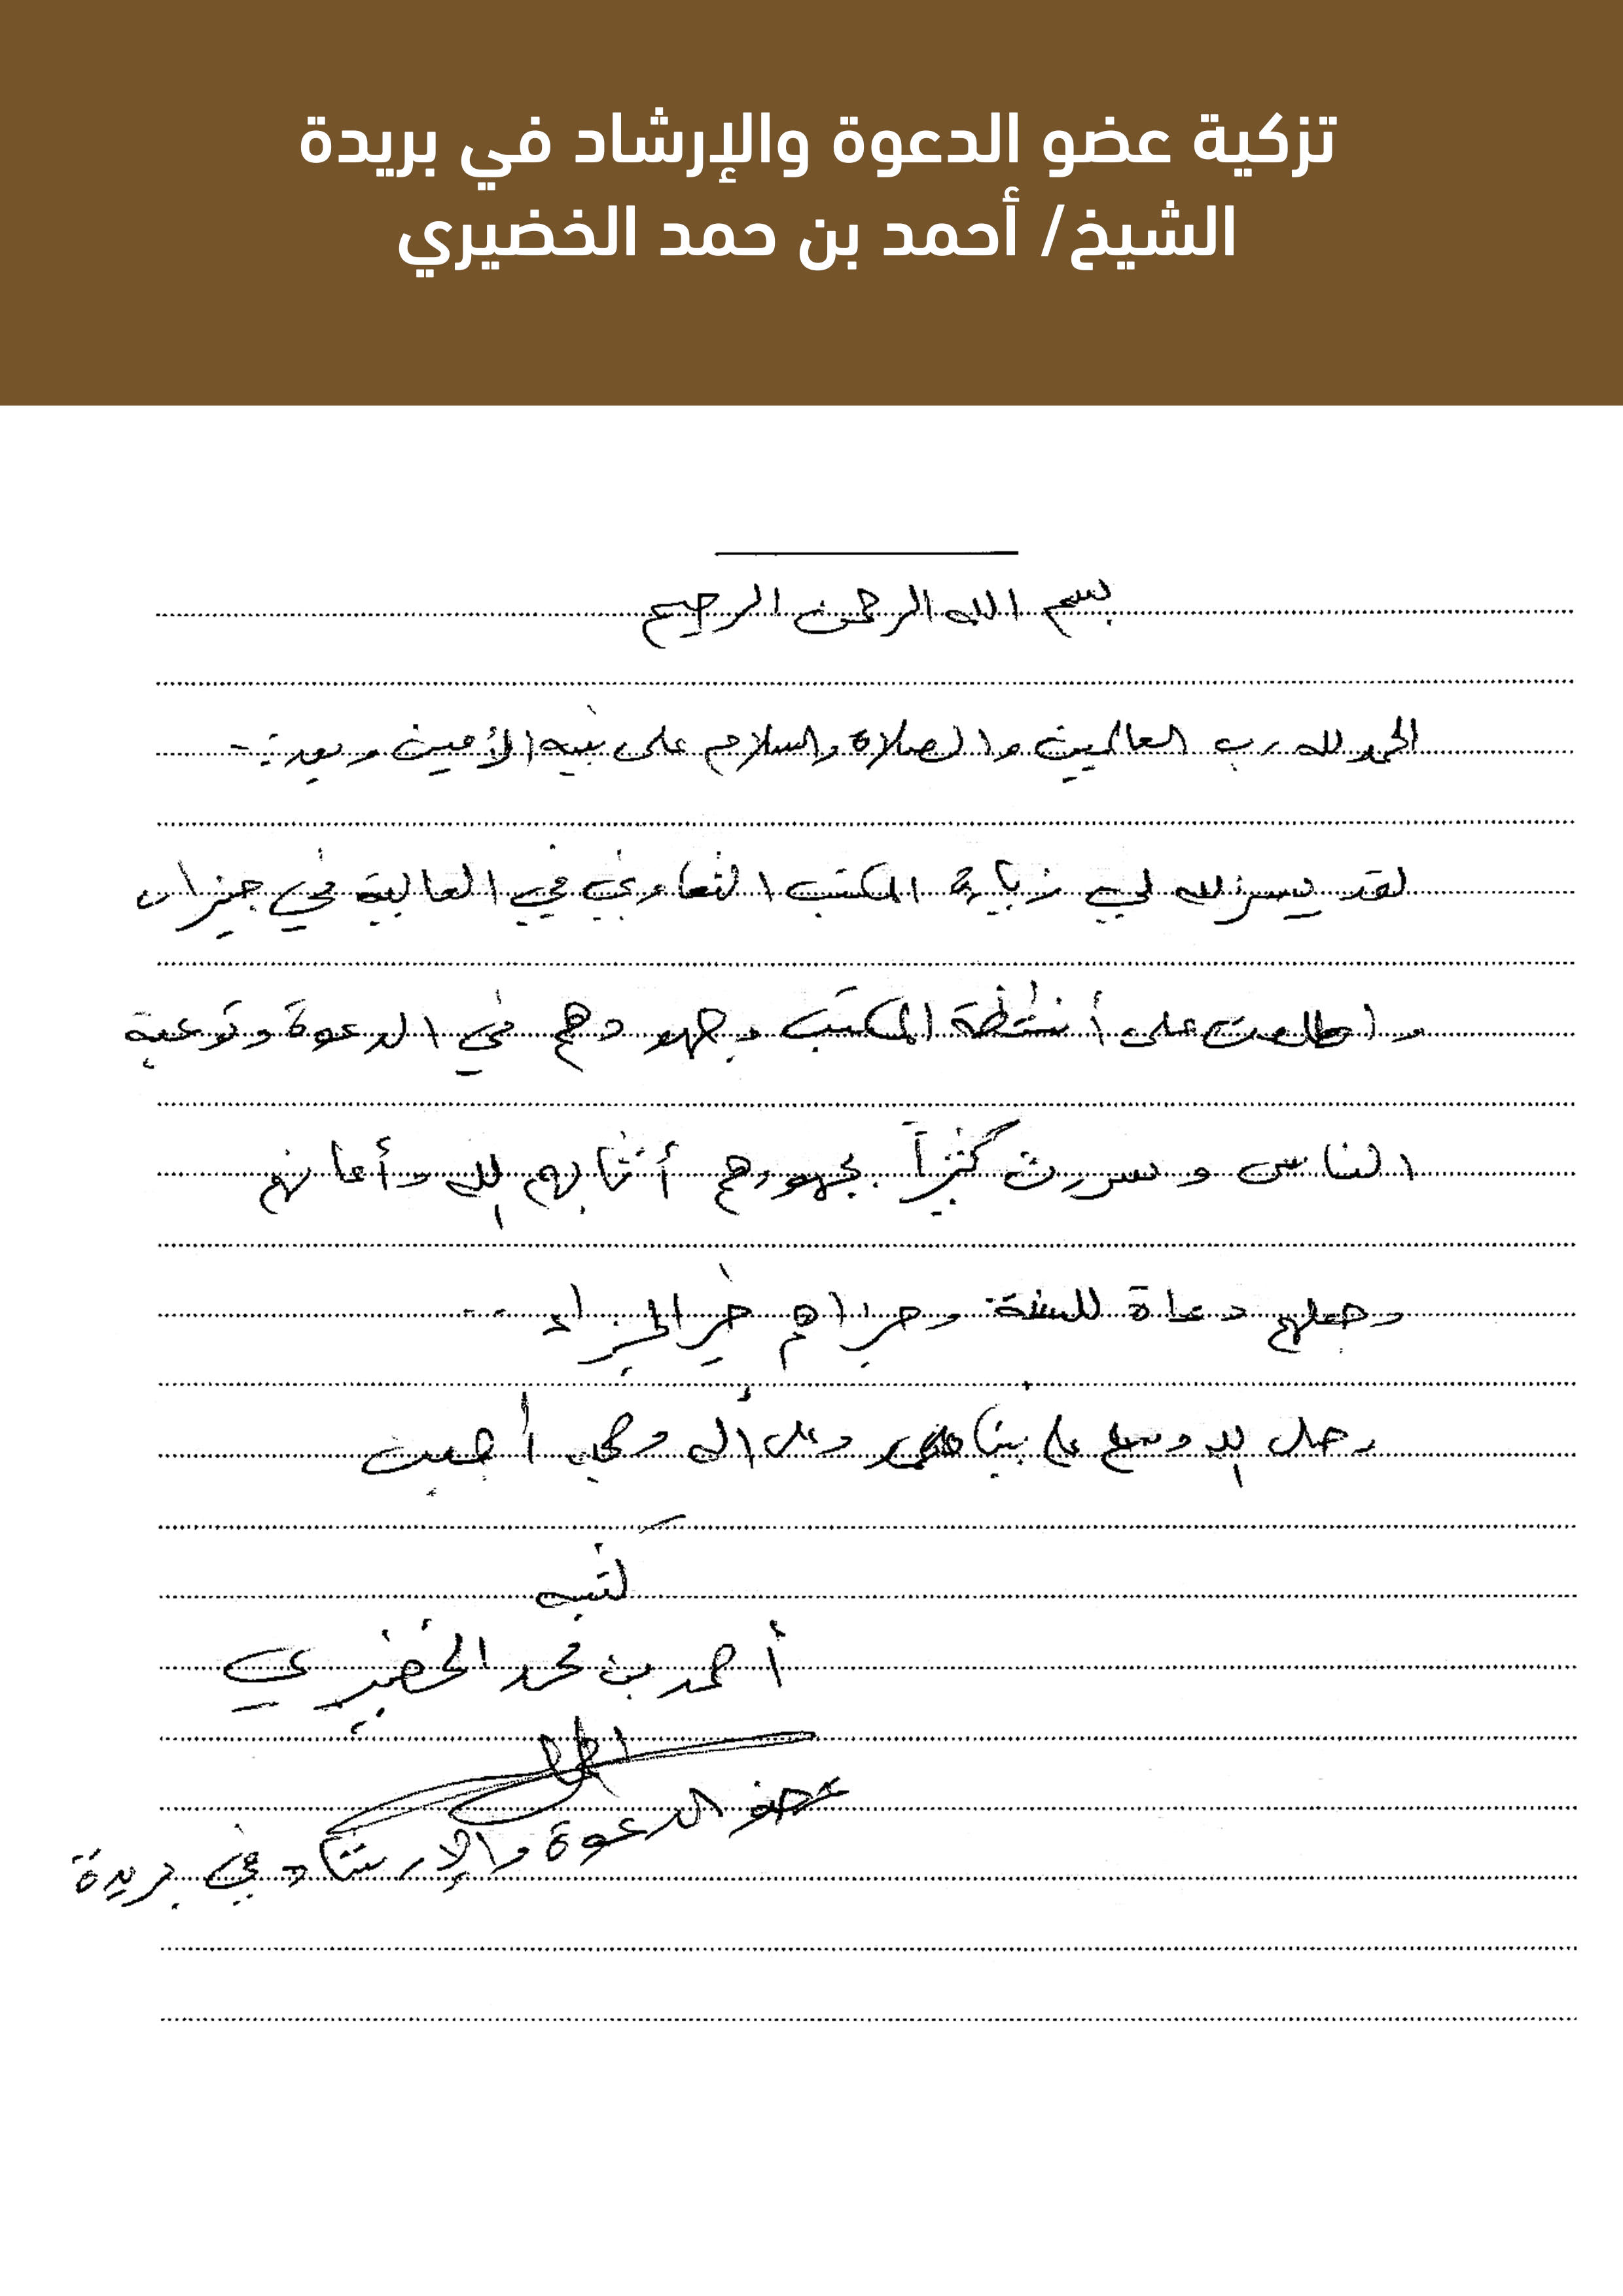 تزكية عضو الدعوة والإرشاد في بريدة
الشيخ/ أحمد بن حمد الخضيري
بسم الله الرحمن الرحيم
الحمد لله رب العالمين والصلاة والسلام على نبيه الأمين وبعد :-
لقد يسر الله لي زيارة المكتب التعاوني في العالية في جيزان
واطلعت على أنشطة المكتب وجهودهم في الدعوة وتوعية
الناس وسررت كثيراً بجهودهم أثابهم الله وأعانهم
وجعلهم دعاة للسنة وجزاهم خير الجزاء ..
وصلى الله وسلم على نبينا محمد وعلى آله وصحبه أجمعين
كتبه
أحمد بن محمد الخضيري
عضو الدعوة والإرشاد في بريدة